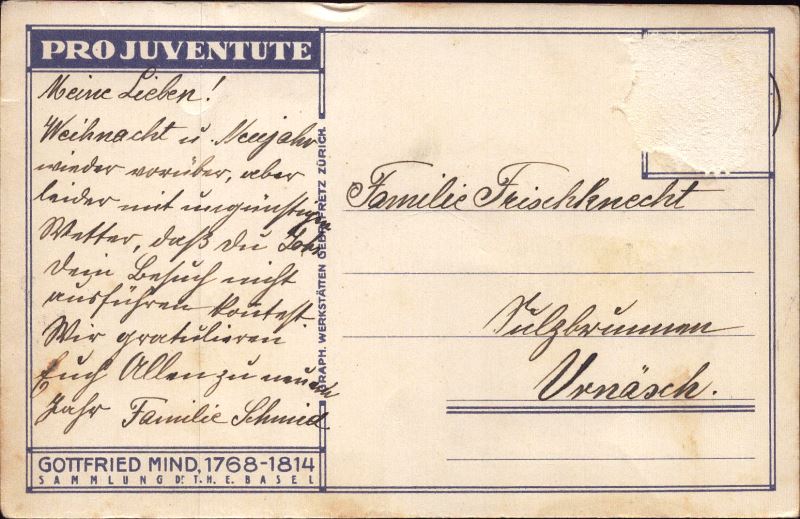 PRO JUVENTUTE
Meine Lieben!
Weihnacht u. Neujahr
wieder vorüber, aber
leider mit ungünstigem
Wetter, daß du
dein Besuch nicht
ausführen kontest
Wir gratulieren
Euch Allen zu neuen
Jahr Familie Schmid
GRAPH. WERKSTÄTTEN GEBR. FRETZ ZÜRICH.
Familie Frischknecht
Sulzbrunnen
Urnäsch.
GOTTFRIED MIND, 1768-1814
SAMMLUNG DR. T.H.E. BASEL